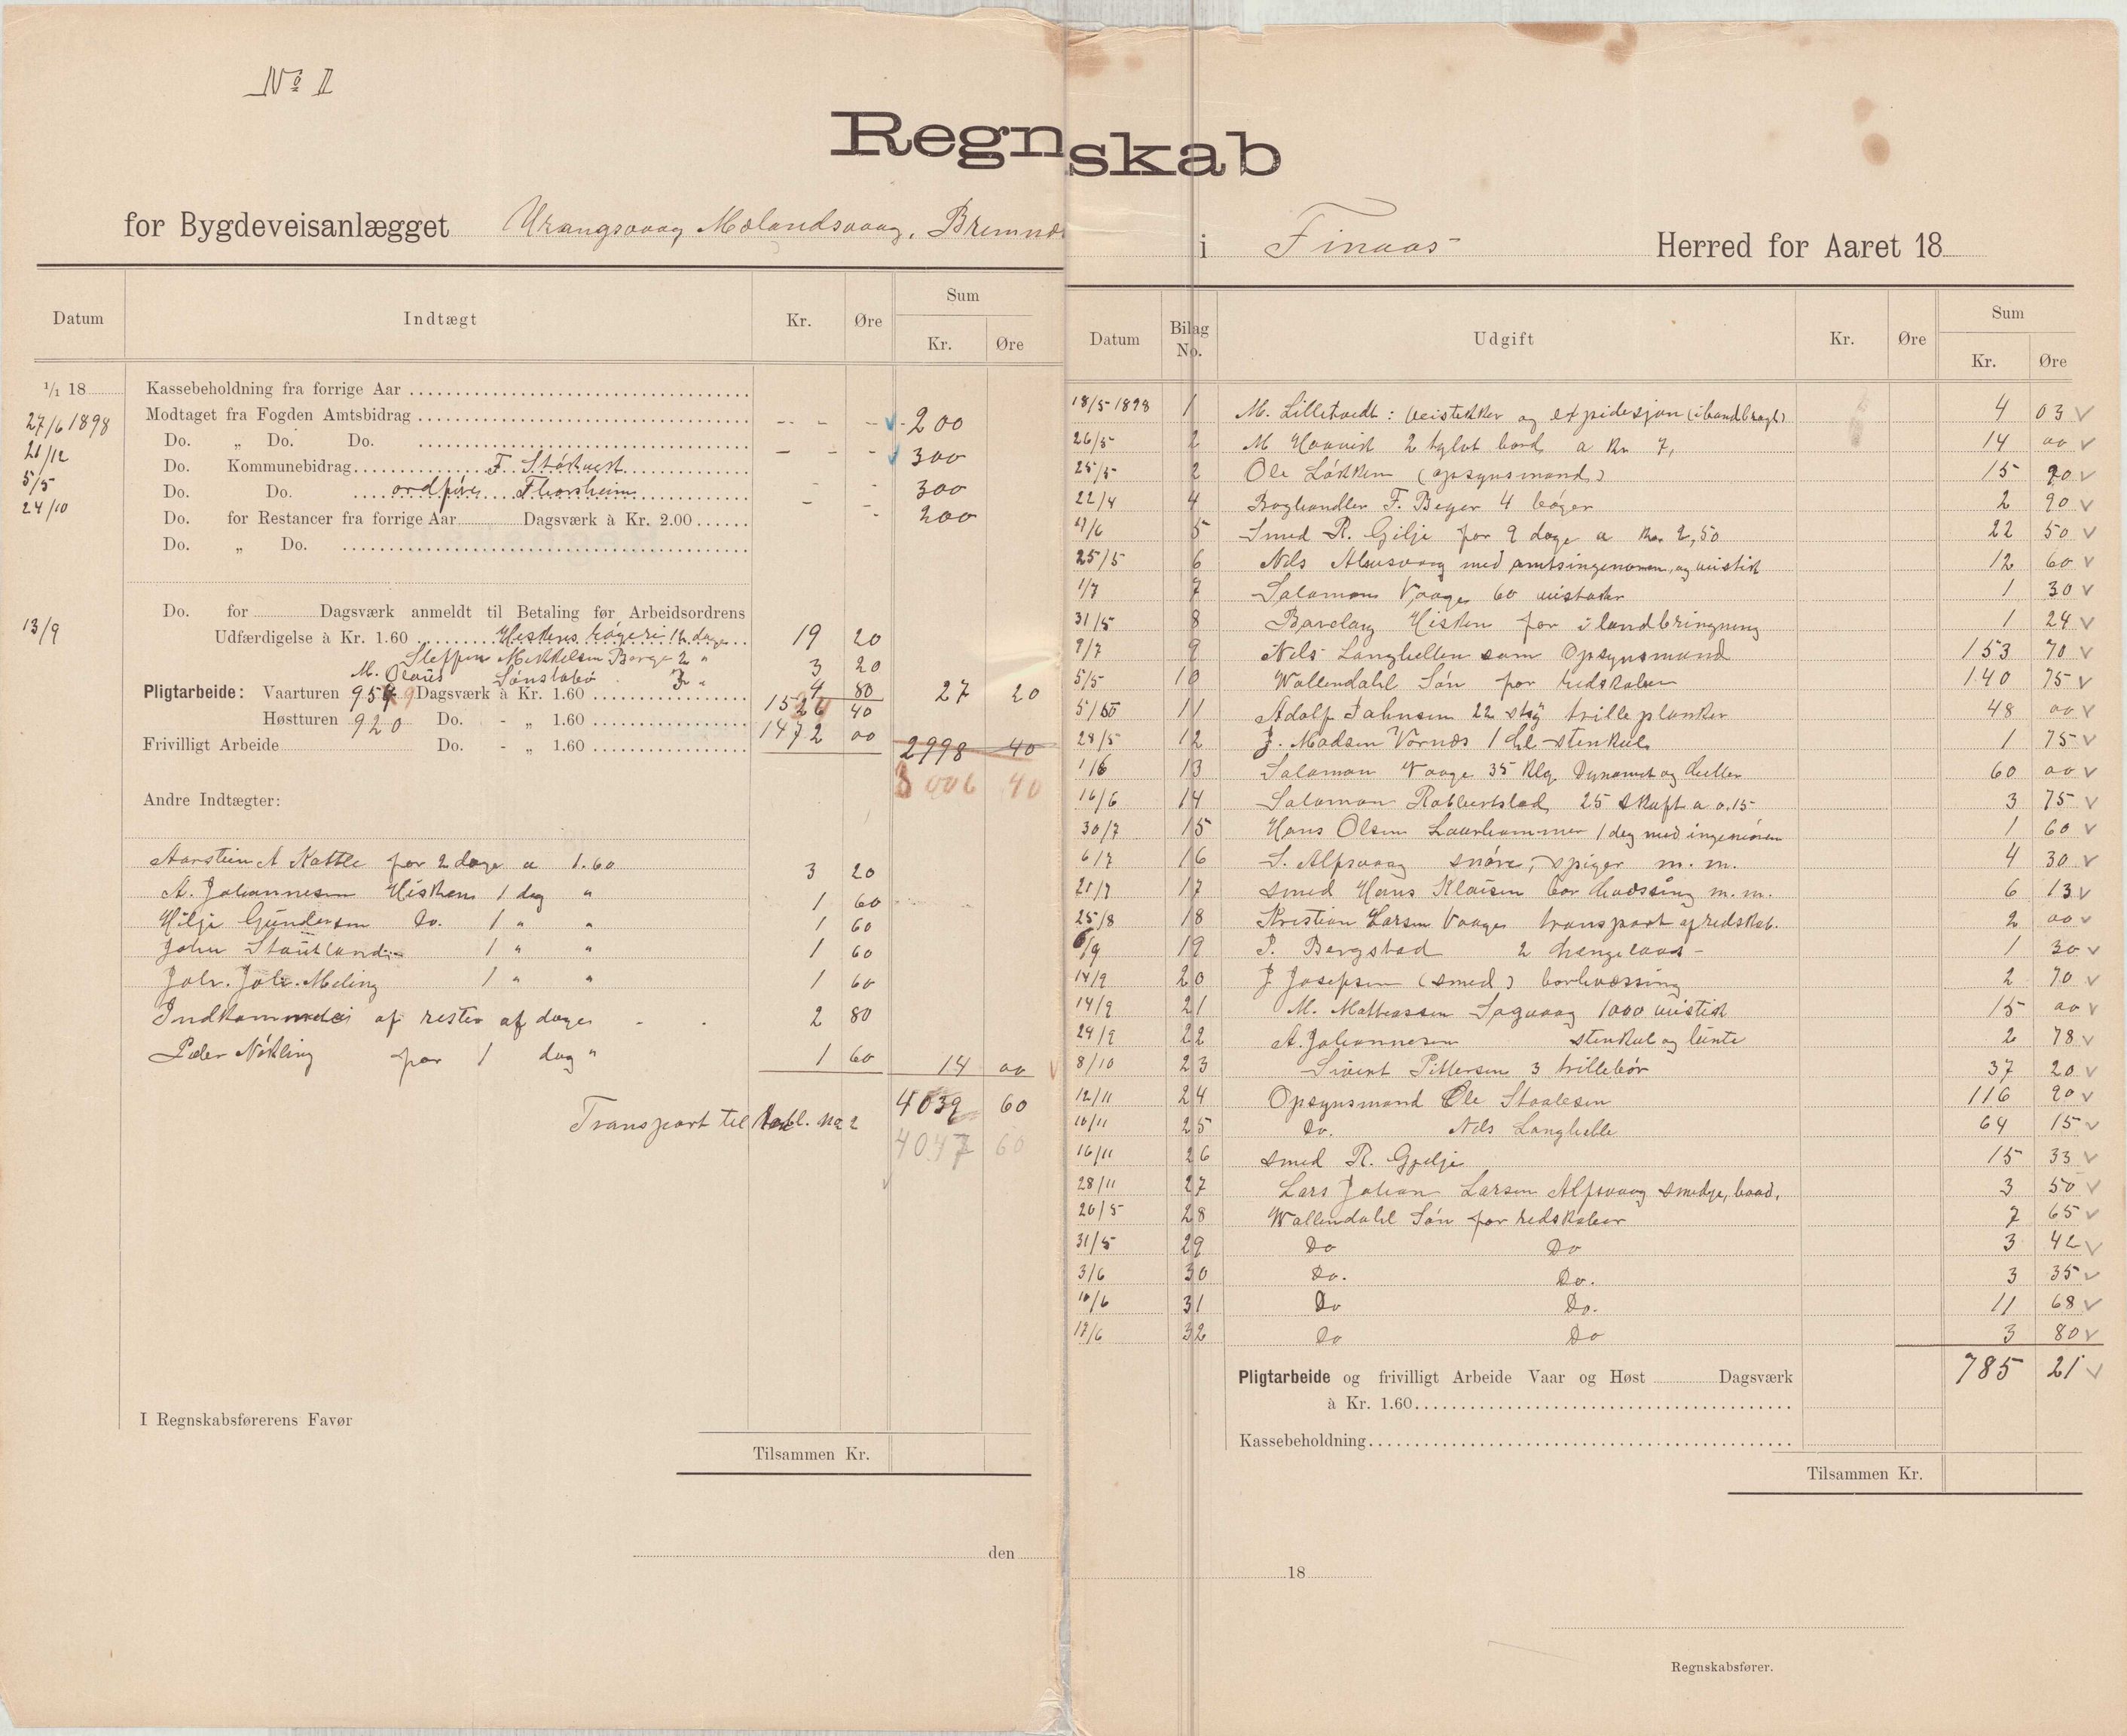 No I
Regnskab
for Bygdeveisanlægget Urangsvaag Mælandsvaag, Bremnæs i Finaas Herred for Aaret 18
Datum Indtægt Kr. Øre Sum
Kr. Øre
1/1 18 Kassebeholdning fra forrige Aar
27/6 1898 Modtaget fra Fogden Amtsbidrag - - - 200
21/12 Do. „ Do. Do. - - - 300
5/5 Do. Kommunebidrag F. Størkvest - - 300
24/10 Do. Do. ordfører Thorsheim - - 200
Do. for Restancer fra forrige Aar Dagsværk à Kr. 2.00
Do. „ Do.
Do. for Dagsværk anmeldt til Betaling før Arbeidsordrens
13/9 Udfærdigelse à Kr. 1.60 Hiskens 12 dage 19 20
Steffen Mikkelsen Børge 2 " 3 20
M. Olaus 3 " 4 80 27 20
Pligtarbeide: Vaarturen 954 9 Dagsværk à Kr. 1.60 1526 40
Høstturen 920 Do. - „ 1.60 1472 00
Frivilligt Arbeide Do. - „ 1.60 2998 40
3006 40
Andre Indtægter:
Aarstein A Kattle for 2 dage a 1.60 3 20
A. Johannesen Hisken 1 dag " 1 60
Hilje Gundersen Do. 1 " " 1 60
John Stautland 1 " " 1 60
Joh. Joh. Meling 1 " " 1 60
Indkommen af rester af dage - . 2 80
Peder Nökling for 1 dag " 1 60 14 00
4039 60
Transport til Tabl. No 2
4047 60
I Regnskabsførerens Favør
Tilsammen Kr.
den
Datum Bilag No. Udgift Kr. Øre Sum
Kr. Øre
18/5 1898 1 M. Lilletvedt: veistikker og expidesjon (ilandbragt) 4 03
26/5 2 M Haavik 2 tylvt bord a Kr 7, 14 00
25/5 2 Ole Løkken (opsynsmand) 15 20
22/4 4 Boghandler F. Beyer 4 bøger 2 90
4/6 5 Smed R. Gilje for 9 dage a Kr. 2,50 22 50
25/5 6 Nils Alvsvaag med amtsingenøren, og veistik 12 60
1/7 7 Salomon Vaage 60 veistaker 1 30
31/5 8 Hisken for ilandbringning 1 24
9/7 9 Nels Langhellen som Opsynsmand 153 70
5/5 10 Wallendahl Søn for redskaber 140 75
5/5 11 Adolf Johnsen 22 stÿ trilleplanker 48 00
28/5 12 J. Madsen Vornæs 1 hl stenkul 1 75
1/6 13 Salomon Vaage 35 Klg. Dynamit og hetter 60 00
16/6 14 Salomon 25 skaft a 0.15 3 75
30/7 15 Hans Olsen Laurhammer 1 dag med ingeniøren 1 60
6/7 16 S. Alfsvaag snøre, spiger m. m. 4 30
21/7 17 smed Hans Klausen bor hvæssing m. m. 6 13
25/8 18 Kristian Larsen Vaage transport af redskab. 2 00
6/9 19 P. Bergstad 2 hængelaas 1 30
14/9 20 J Josefsen (smed) borhvæssing 2 70
14/9 21 M. Mathiassen Sagvaag 1000 veistik 15 00
24/9 22 A. Johannesen stenkul og lunte 2 78
8/10 23 Sivert Pettersen 3 trillebør 37 20
12/11 24 Opsynsmand Ole Staalesen 116 90
10/11 25 Do. Nils Langhelle 64 15
16/11 26 smed R. Gjelje 15 33
28/11 27 Lars Johan Larsen Alfsvaag smedje, baad, 3 50
20/5 28 Wallendahl Søn for redskaber 7 65
31/5 29 Do Do 3 42
3/6 30 Do. Do. 3 35
10/6 31 Do Do. 11 68
17/6 32 Do Do 3 80
785 21
Pligtarbeide og frivilligt Arbeide Vaar og Høst Dagsværk
à Kr. 1.60
Kassebeholdning
Tilsammen Kr.
18
Regnskabsfører.